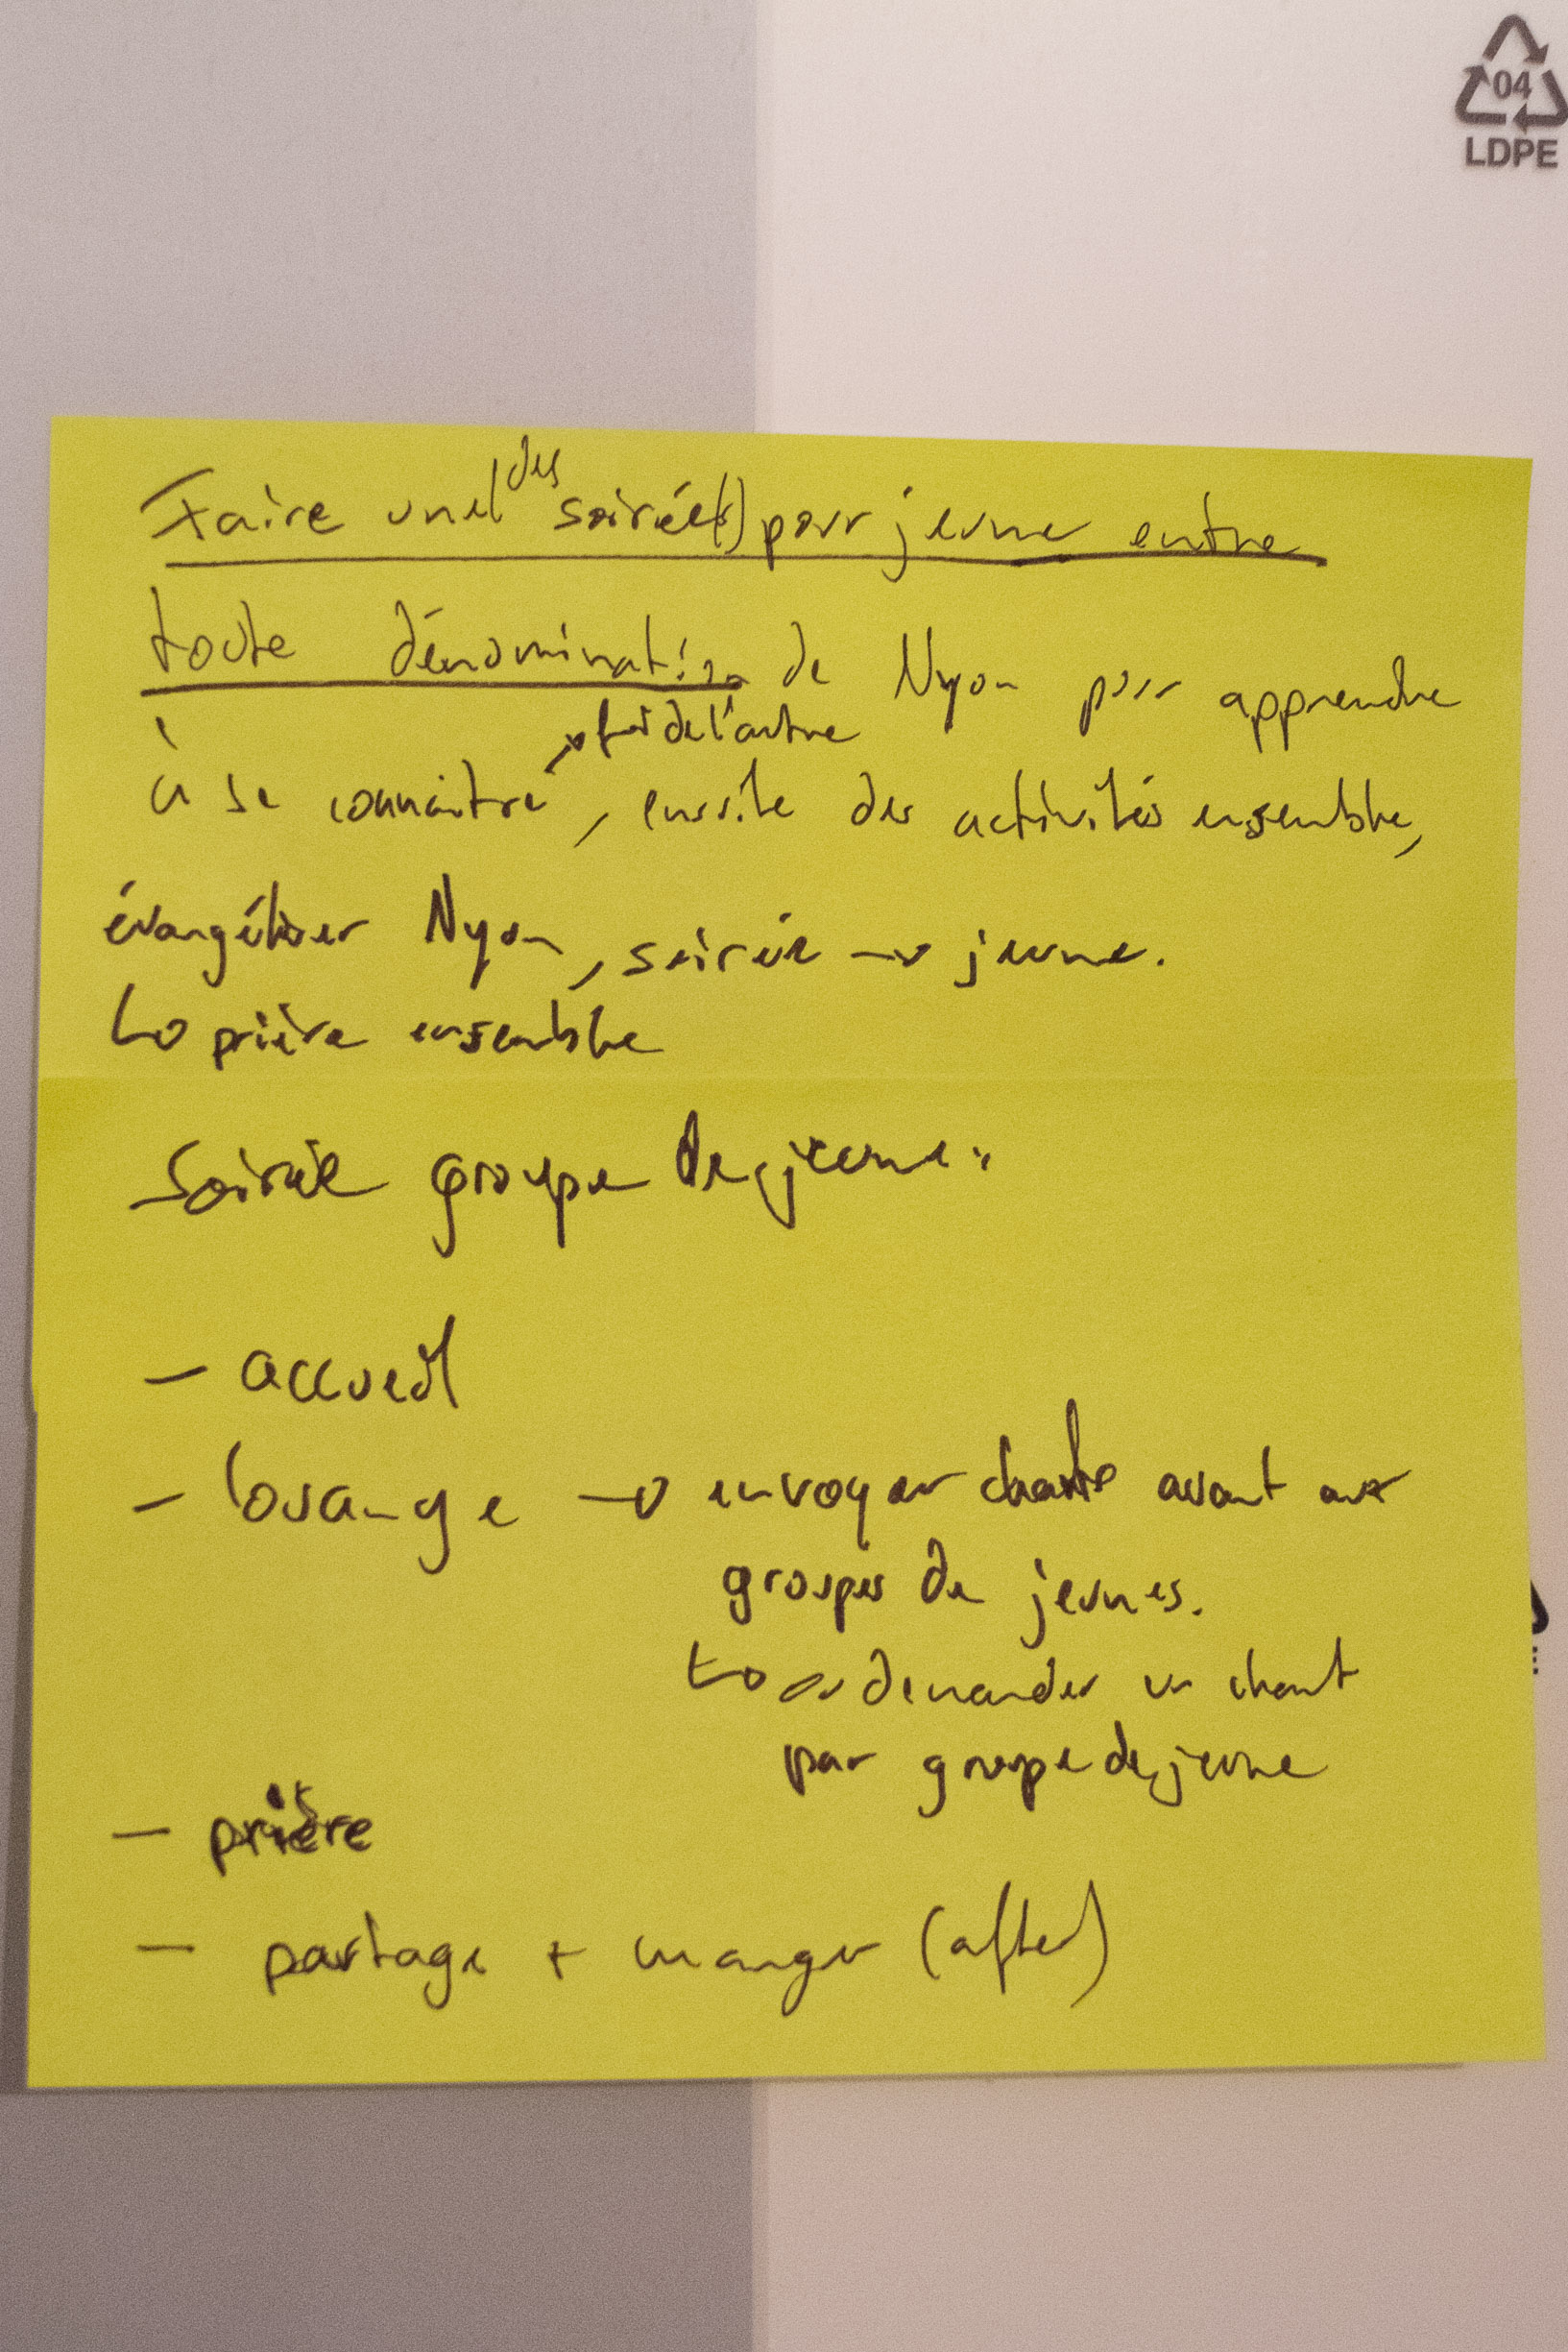 04
LDPE
Faire une/des soirée(s) pour jeune entre
toute dénomination de Nyon pour apprendre
à se connaitre, ensuite des activités ensemble,
→ foi de l'autre
évangéliser Nyon, soirée → jeune.
↳ prière ensemble
Soirée groupe de jeune :
- accueil
- louange → envoyer chants avant aux
groupes de jeunes.
↳ ou demander un chant
par groupe de jeune
- prière
- partage + manger (after)